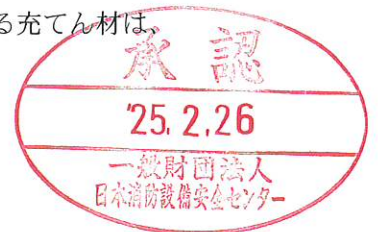 る充てん材は、
承認
'25.2.26
一般財団法人
日本消防設備安全センター